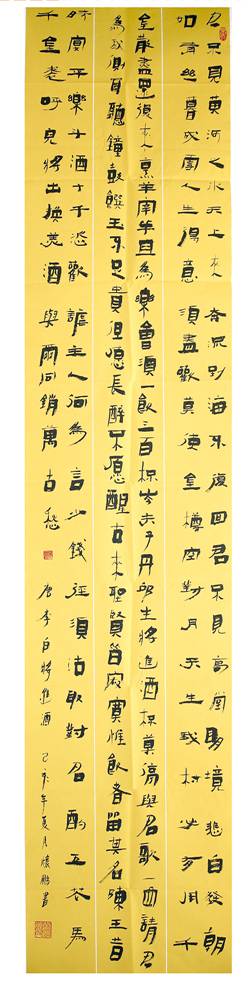 君不見黃河之水天上來奔流到海不復回君不見高堂明鏡悲白髮朝
如青絲暮成雪人生得意須盡歡莫使金樽空對月天生我材必有用千
金散盡還復來烹羊宰牛且為樂會須一飲三百杯岑夫子丹邱生將進酒杯莫停與君歌一曲請君
為我側耳聽鐘鼓饌玉不足貴但願長醉不願醒古來聖賢皆寂寞惟飲者留其名陳王昔
時宴平樂斗酒十千恣歡謔主人何為言少錢徑須沽取對君酌五花馬
千金裘呼兒將出換美酒與爾同銷萬古愁
唐李白將進酒
己亥年夏月